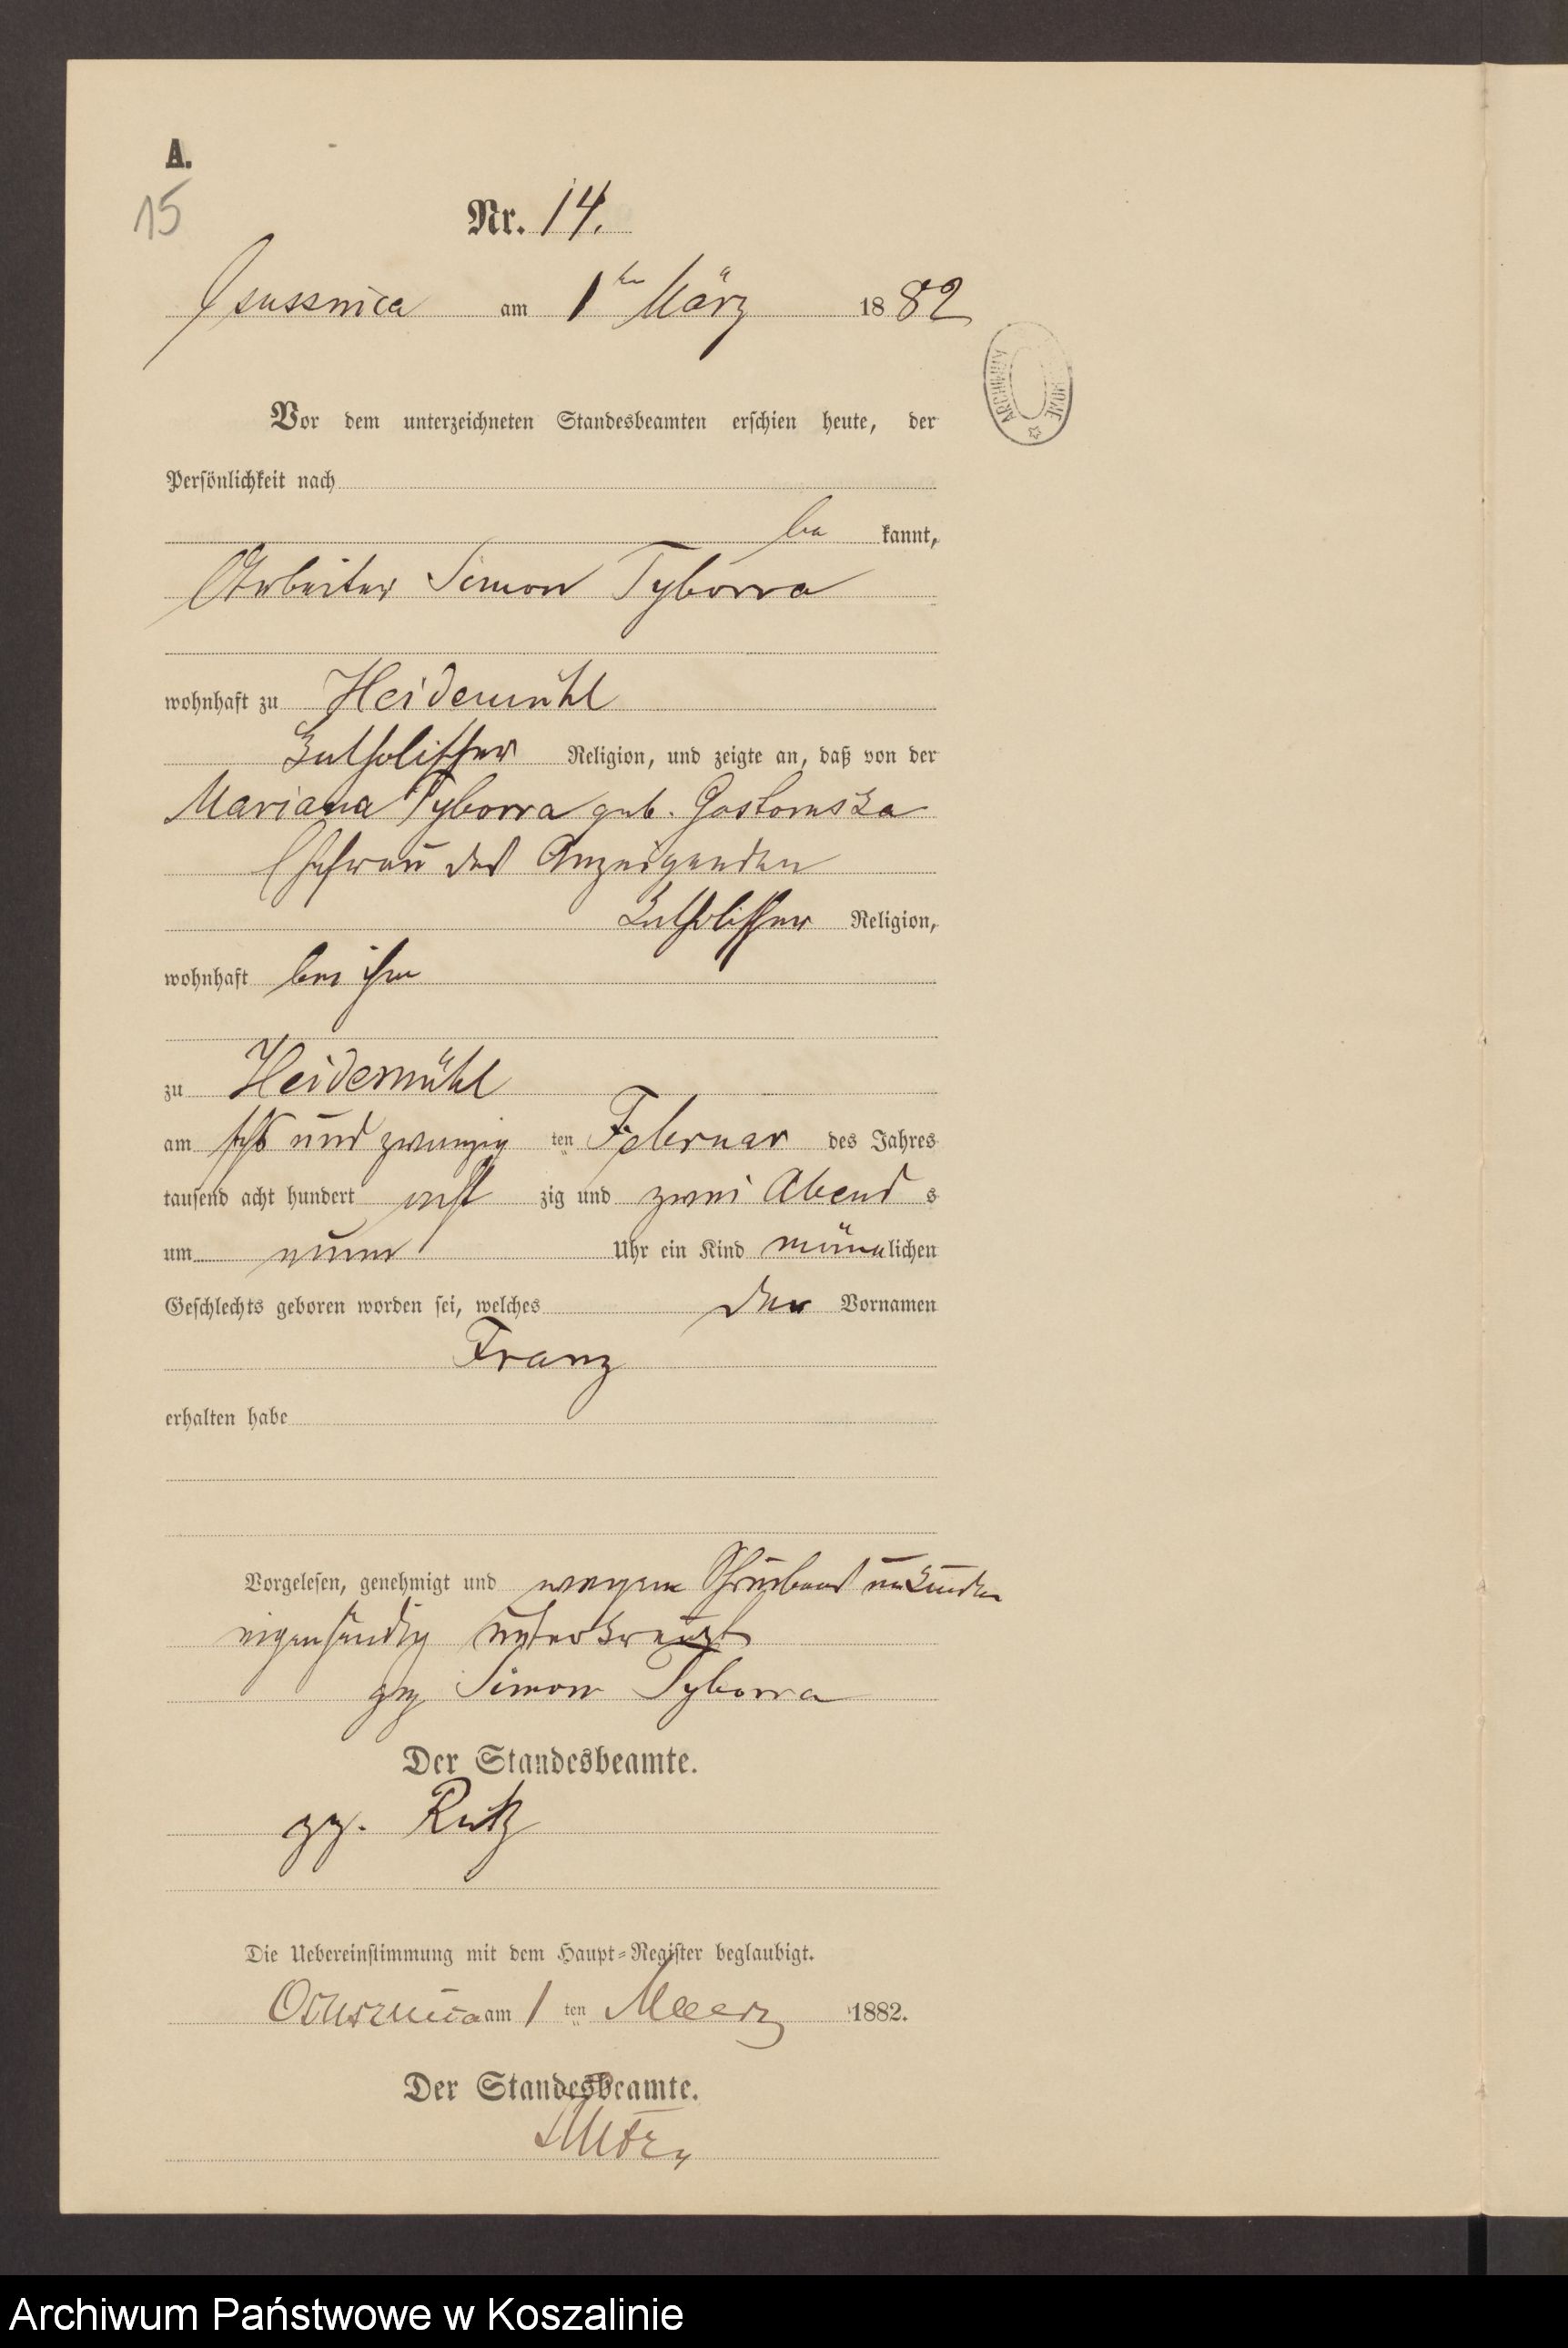 A.
15
Nr. 14.
am 1ten März 1882
Vor dem unterzeichneten Standesbeamten erschien heute, der
Persönlichkeit nach
be kannt,
Arbeiter Simon Tyborra
wohnhaft zu Heidemühl
katholischer Religion, und zeigte an, daß von der
Mariana Tyborra geb. Gostomska
Ehefrau des Anzeigenden
katholischer Religion,
wohnhaft bei ihm
zu Heidemühl
am sechs und zwanzig ten Februar des Jahres
tausend acht hundert acht zig und zwei Abend s
um neun Uhr ein Kind männlichen
Geschlechts geboren worden sei, welches den Vornamen
Franz
erhalten habe
Vorgelesen, genehmigt und wegen Schreibens unkunden
eigenhändig unterkreuzt
gez Simon Tyborra
Der Standesbeamte.
gez. Rutz
Die Uebereinstimmung mit dem Haupt-Register beglaubigt.
am 1 ten Maerz 1882.
Der Standesbeamte.
Archiwum Państwowe w Koszalinie